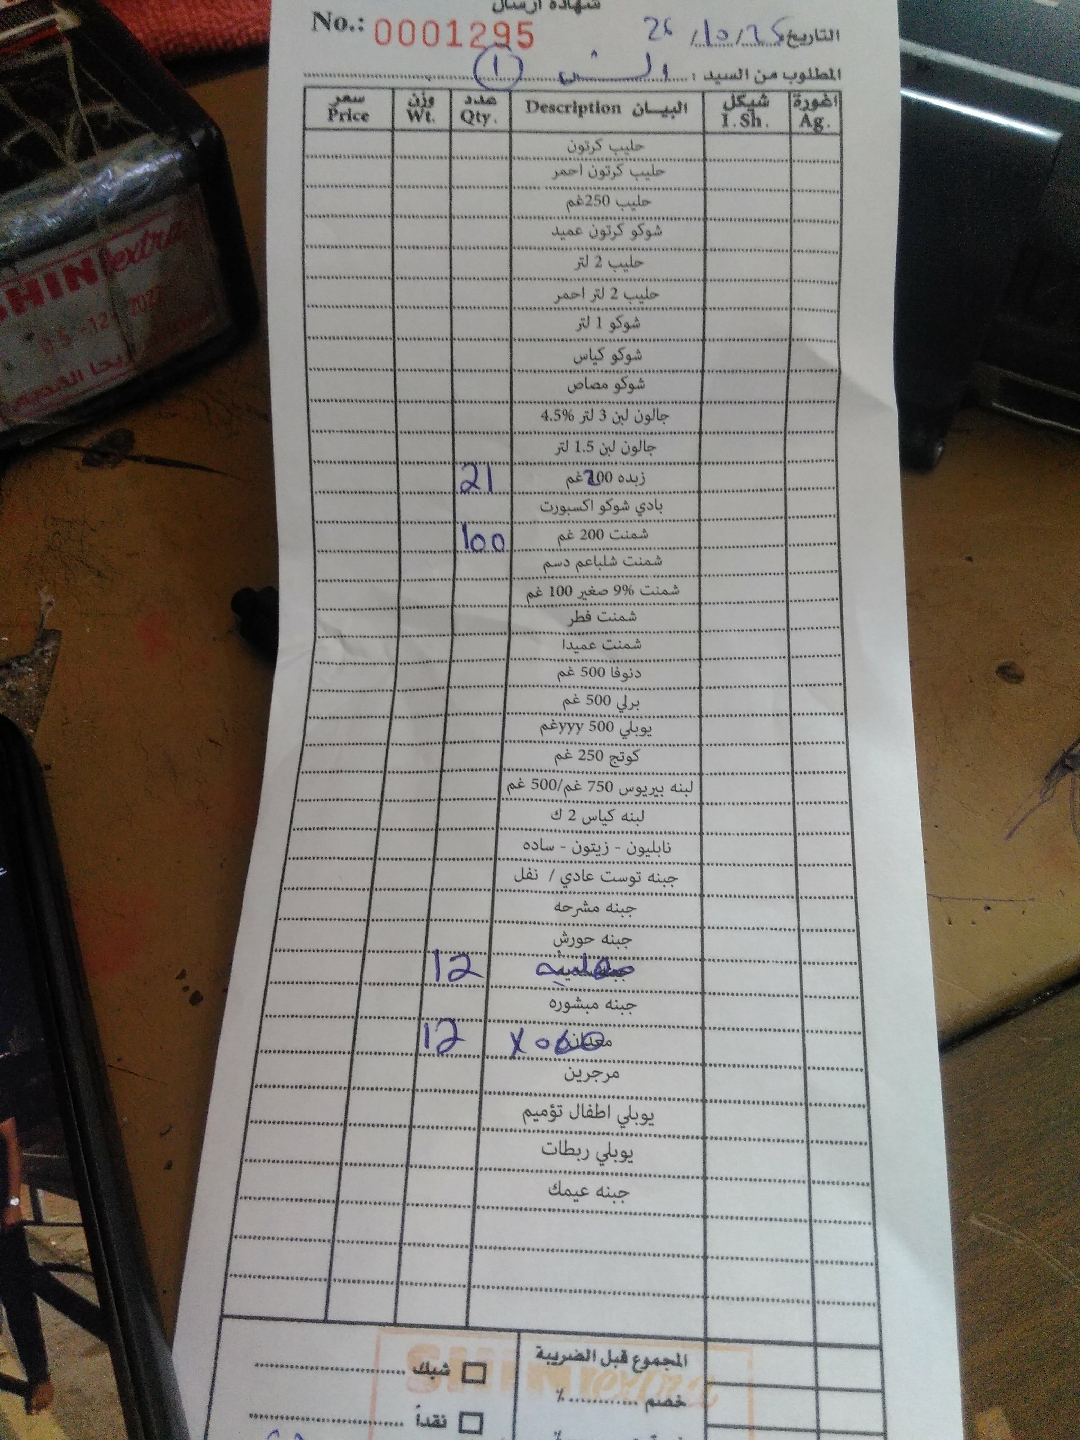 شهادة ارسال
No.: 0001295
التاريخ
المطلوب من السيد :
اغورة Ag. شيكل I.Sh. البيـان Description عدد Qty. وزن Wt. سعر Price
حليب كرتون
حليب كرتون احمر
حليب 250غم
شوكو كرتون عميد
حليب 2 لتر
حليب 2 لتر احمر
شوكو 1 لتر
شوكو كياس
شوكو مصاص
جالون لبن 3 لتر 4.5%
جالون لبن 1.5 لتر
زبده 200غم 21
بادي شوكو اكسبورت
شمنت 200 غم 100
شمنت شلباعم دسم
شمنت 9% صغير 100 غم
شمنت فطر
شمنت عميدا
دنوفا 500 غم
برلي 500 غم
يوبلي 500 yyyغم
كوتج 250 غم
لبنه بيريوس 750 غم/500 غم
لبنه كياس 2 ك
نابليون - زيتون - ساده
جبنه توست عادي / نفل
جبنه مشرحه
جبنه حورش
12
جبنه مبشوره
12
مرجرين
يوبلي اطفال تؤميم
يوبلي ربطات
جبنه عيمك
المجموع قبل الضريبة
شبك
خصم ............ %
نقداً
SHIN extra